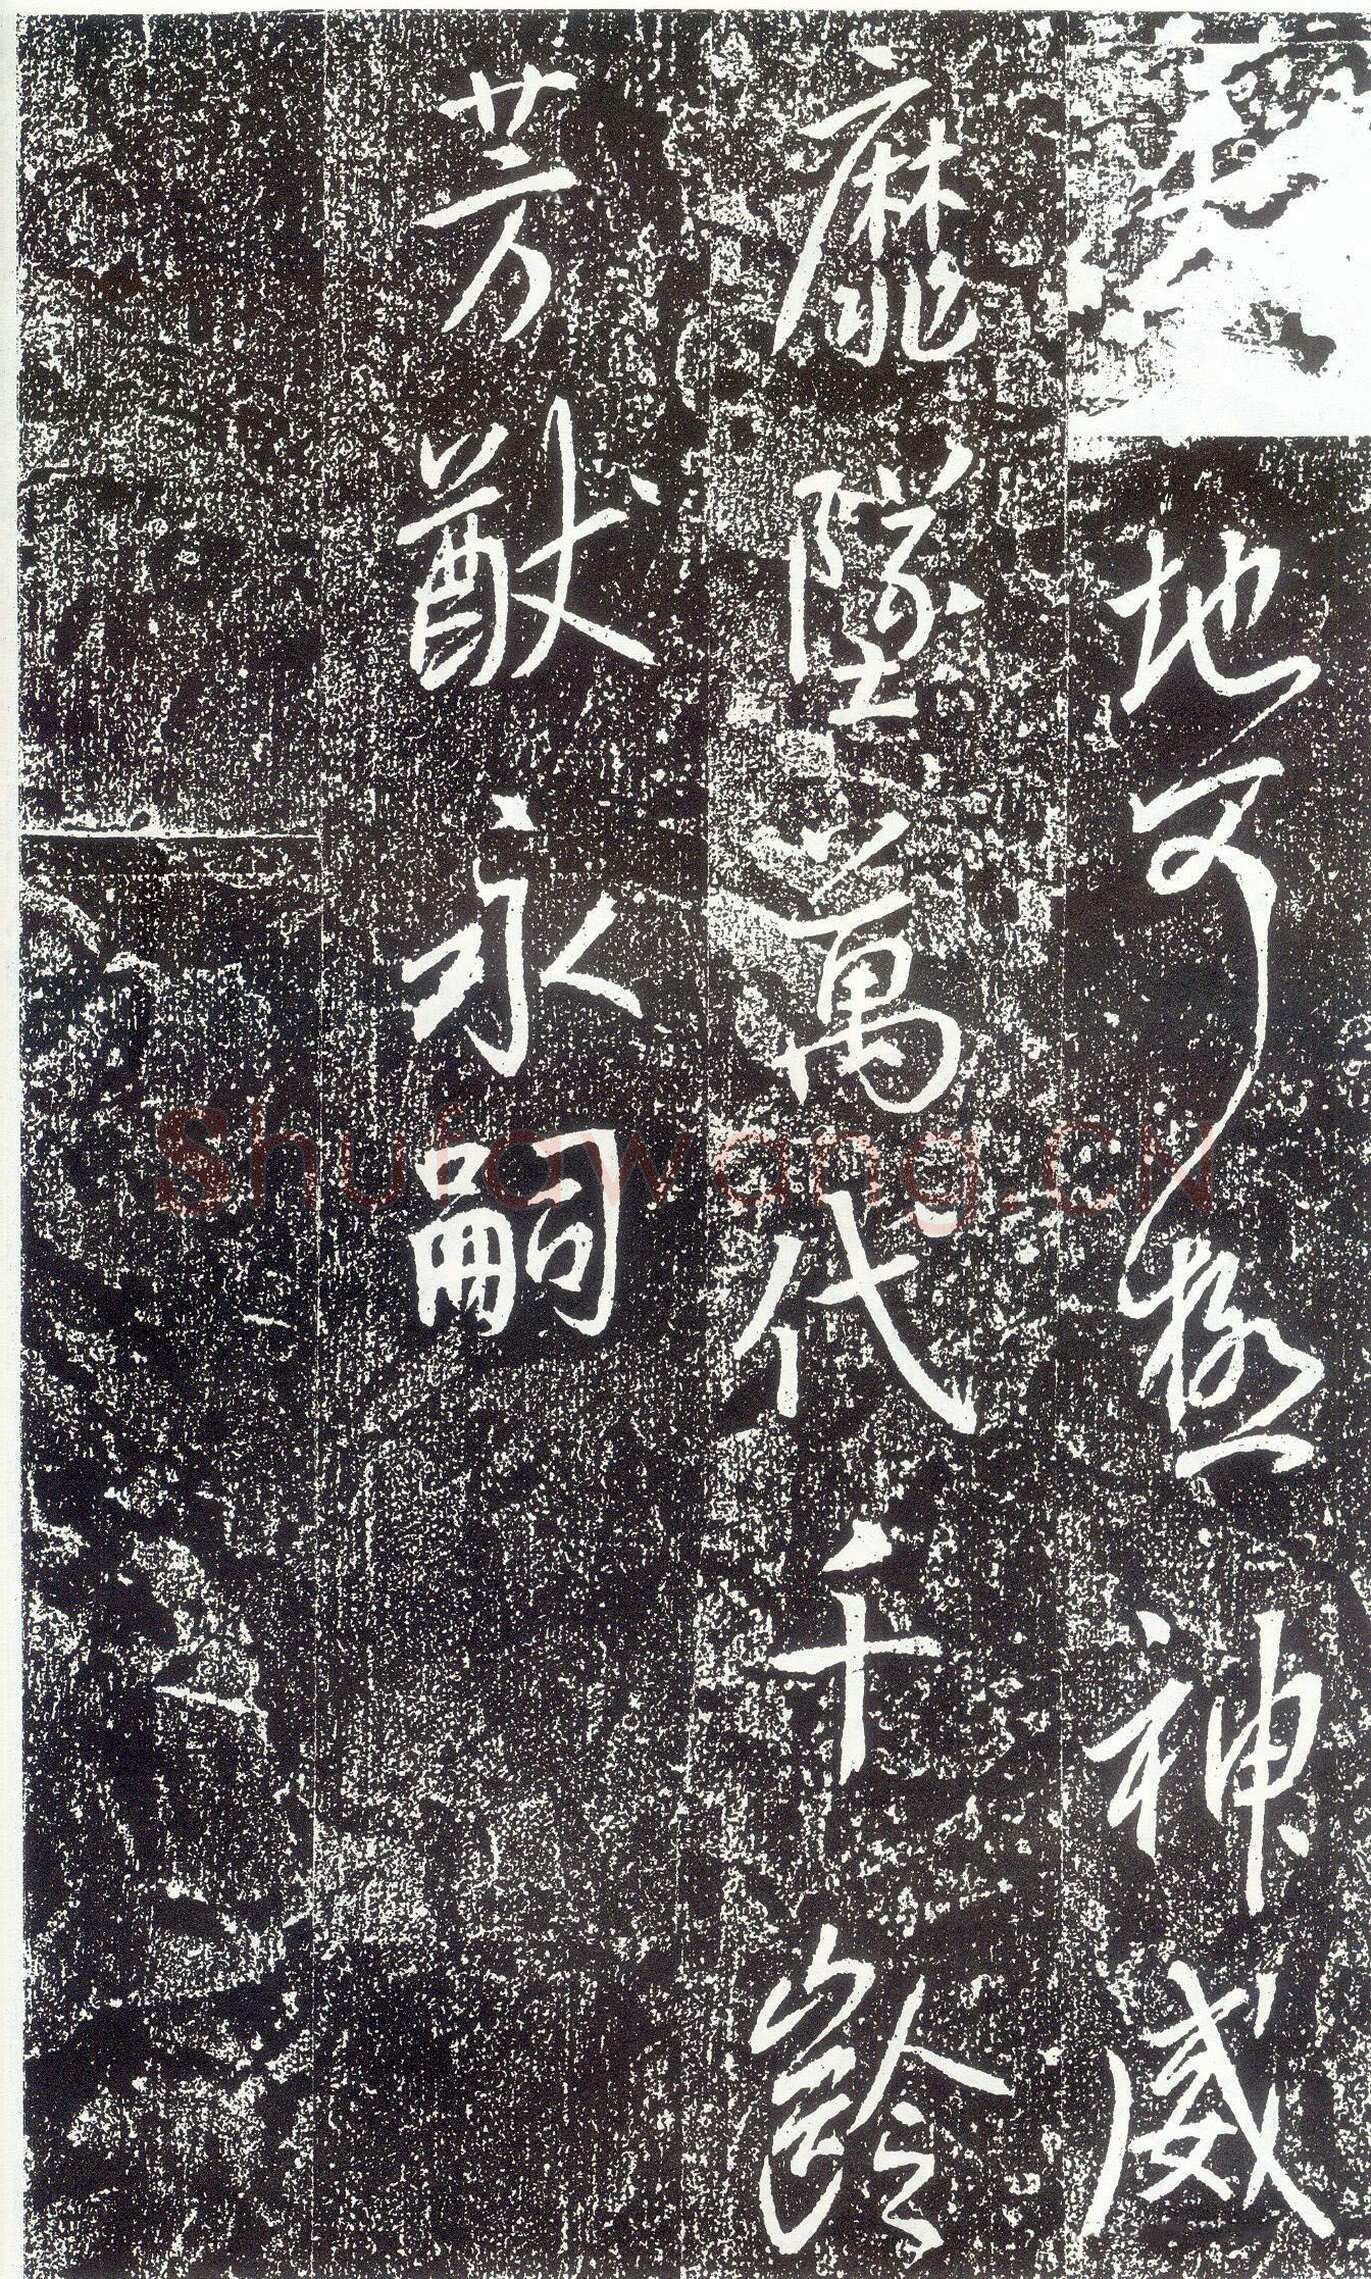 地可極神威
靡墜萬代千齡
芳猷永嗣
Shufawang.CN